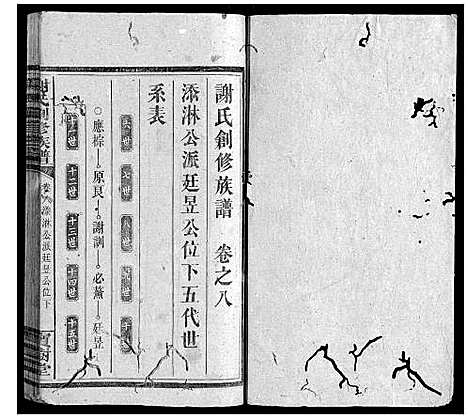 謝氏創修族譜 卷之八
添淋公派廷昱公位下五代世
系表
七世
○應棕—○原良—○謝訓—○必薦—○廷昱
十二世 十三世 十四世 十五世
謝氏創修族譜 卷八 添淋公派廷昱公位下 寶樹堂